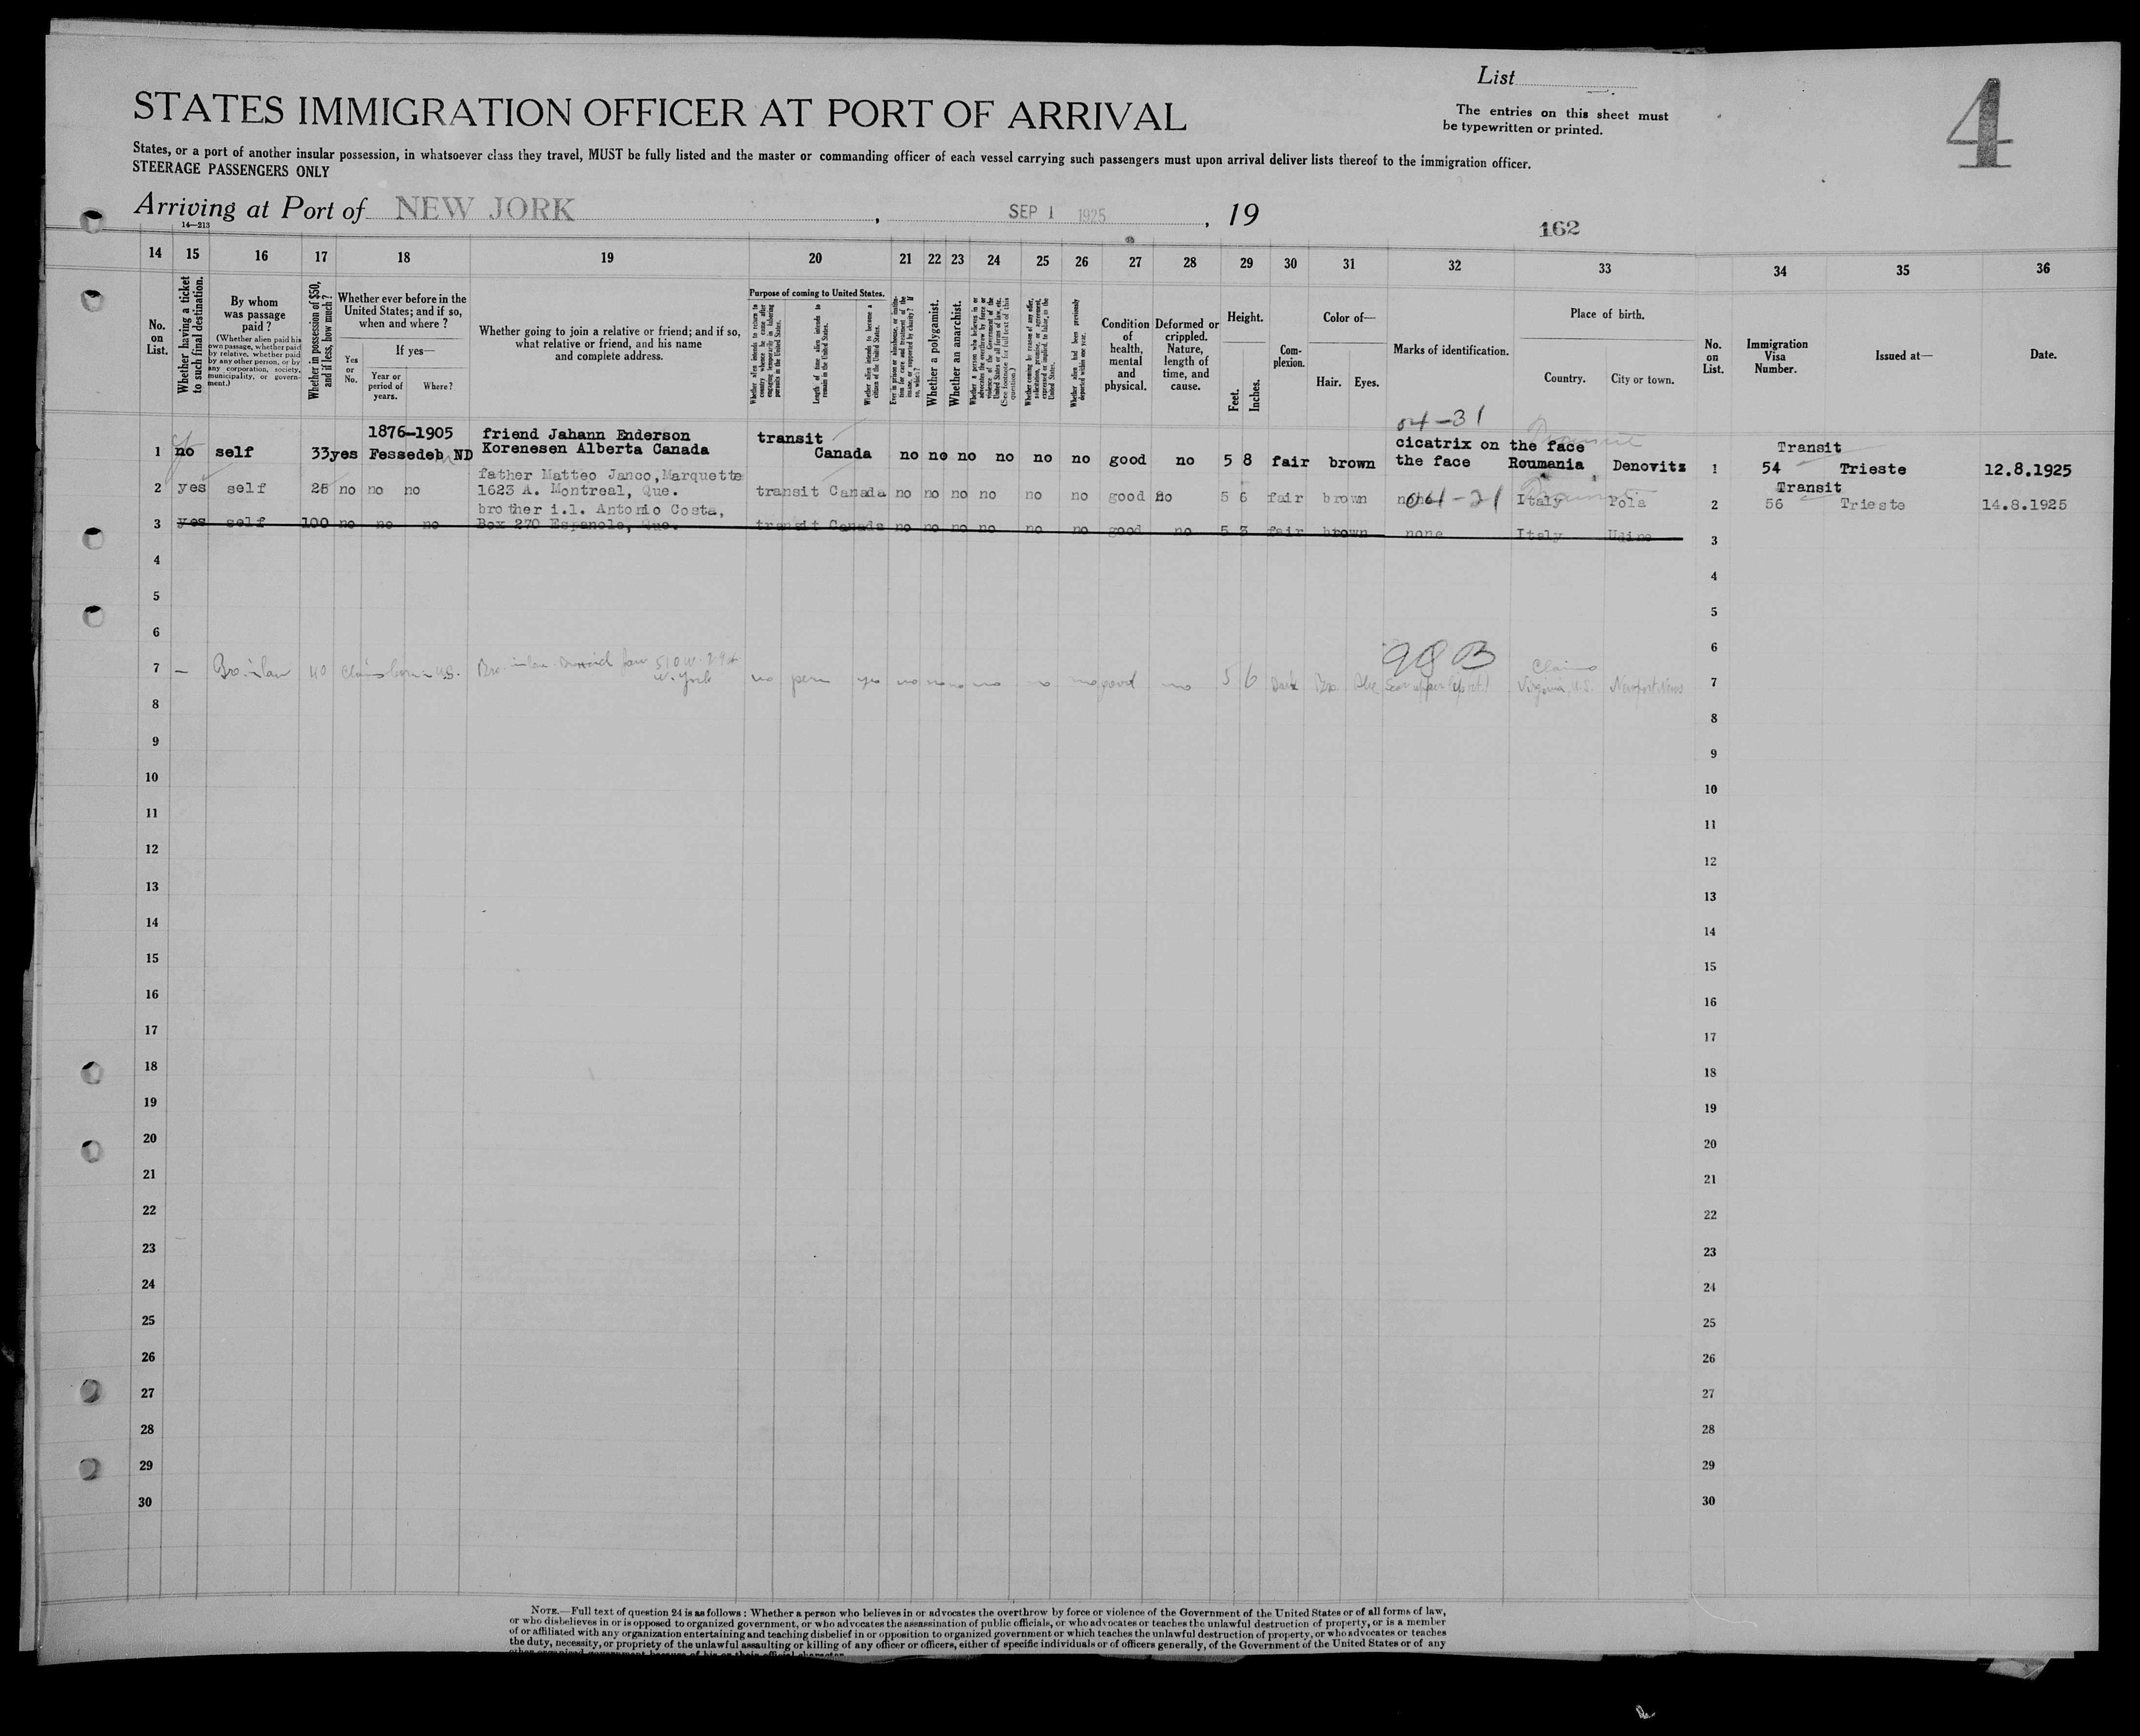 List
4
STATES IMMIGRATION OFFICER AT PORT OF ARRIVAL
The entries on this sheet must
be typewritten or printed.
States, or a port of another insular possession, in whatsoever class they travel, MUST be fully listed and the master or commanding officer of each vessel carrying such passengers must upon arrival deliver lists thereof to the immigration officer.
STEERAGE PASSENGERS ONLY
Arriving at Port of NEW JORK , SEP 1 1925 , 19
14—213
162
14 15 16 17 18 19 20 21 22 23 24 25 26 27 28 29 30 31 32 33 34 35 36
No. on List.
Whether having a ticket to such final destination.
By whom was passage paid?
(Whether alien paid his own passage, whether paid by relative, whether paid by any other person, or by any corporation, society, municipality, or government.)
Whether in possession of $50, and if less, how much?
Whether ever before in the United States; and if so, when and where?
Yes or No.
If yes—
Year or period of years.
Where?
Whether going to join a relative or friend; and if so, what relative or friend, and his name and complete address.
Purpose of coming to United States.
Whether alien intends to return to country whence he came after engaging temporarily in laboring pursuits in the United States.
Length of time alien intends to remain in the United States.
Whether alien intends to become a citizen of the United States.
Ever in prison or almshouse, or institution for care and treatment of the insane, or supported by charity? If so, which?
Whether a polygamist.
Whether an anarchist.
Whether a person who believes in or advocates the overthrow by force or violence of the Government of the United States or all forms of law, etc. (See footnote for full text of this question.)
Whether coming by reason of any offer, solicitation, promise, or agreement, expressed or implied, to labor, in the United States.
Whether alien had been previously deported within one year.
Condition of health, mental and physical.
Deformed or crippled. Nature, length of time, and cause.
Height.
Feet. Inches.
Complexion.
Color of—
Hair. Eyes.
Marks of identification.
Place of birth.
Country. City or town.
No. on List.
Immigration Visa Number.
Issued at—
Date.
04-31
1876-1905 friend Jahann Enderson transit cicatrix on the face Transit
1 no self 33 yes Fessedeb ND Korenesen Alberta Canada Canada no no no no no no good no 5 8 fair brown the face Roumania Denovitz 1 54 Trieste 12.8.1925
father Matteo Janco, Marquette Transit
2 yes self 25 no no no 1623 A. Montreal, Que. transit Canada no no no no no no good no 5 6 fair brown 04-21 Italy Pola 2 56 Trieste 14.8.1925
brother i.l. Antonio Costa,
3 yes self 100 no no no Box 270 Espanole, Que. transit Canada no no no no no no good no 5 3 fair brown none Italy Udine 3
4 4
5 5
6 98B 6
7 — Bro. in law 40 Claims born in U.S. Bro. in law 510 W. 29 St N. York no perm yes no no no no no no good no 5 6 Dark Bro. Claims Virginia, U.S. 7
8 8
9 9
10 10
11 11
12 12
13 13
14 14
15 15
16 16
17 17
18 18
19 19
20 20
21 21
22 22
23 23
24 24
25 25
26 26
27 27
28 28
29 29
30 30
NOTE.—Full text of question 24 is as follows: Whether a person who believes in or advocates the overthrow by force or violence of the Government of the United States or of all forms of law,
or who disbelieves in or is opposed to organized government, or who advocates the assassination of public officials, or who advocates or teaches the unlawful destruction of property, or is a member
of or affiliated with any organization entertaining and teaching disbelief in or opposition to organized government or which teaches the unlawful destruction of property, or who advocates or teaches
the duty, necessity, or propriety of the unlawful assaulting or killing of any officer or officers, either of specific individuals or of officers generally, of the Government of the United States or of any
other organized government because of his or their official character.